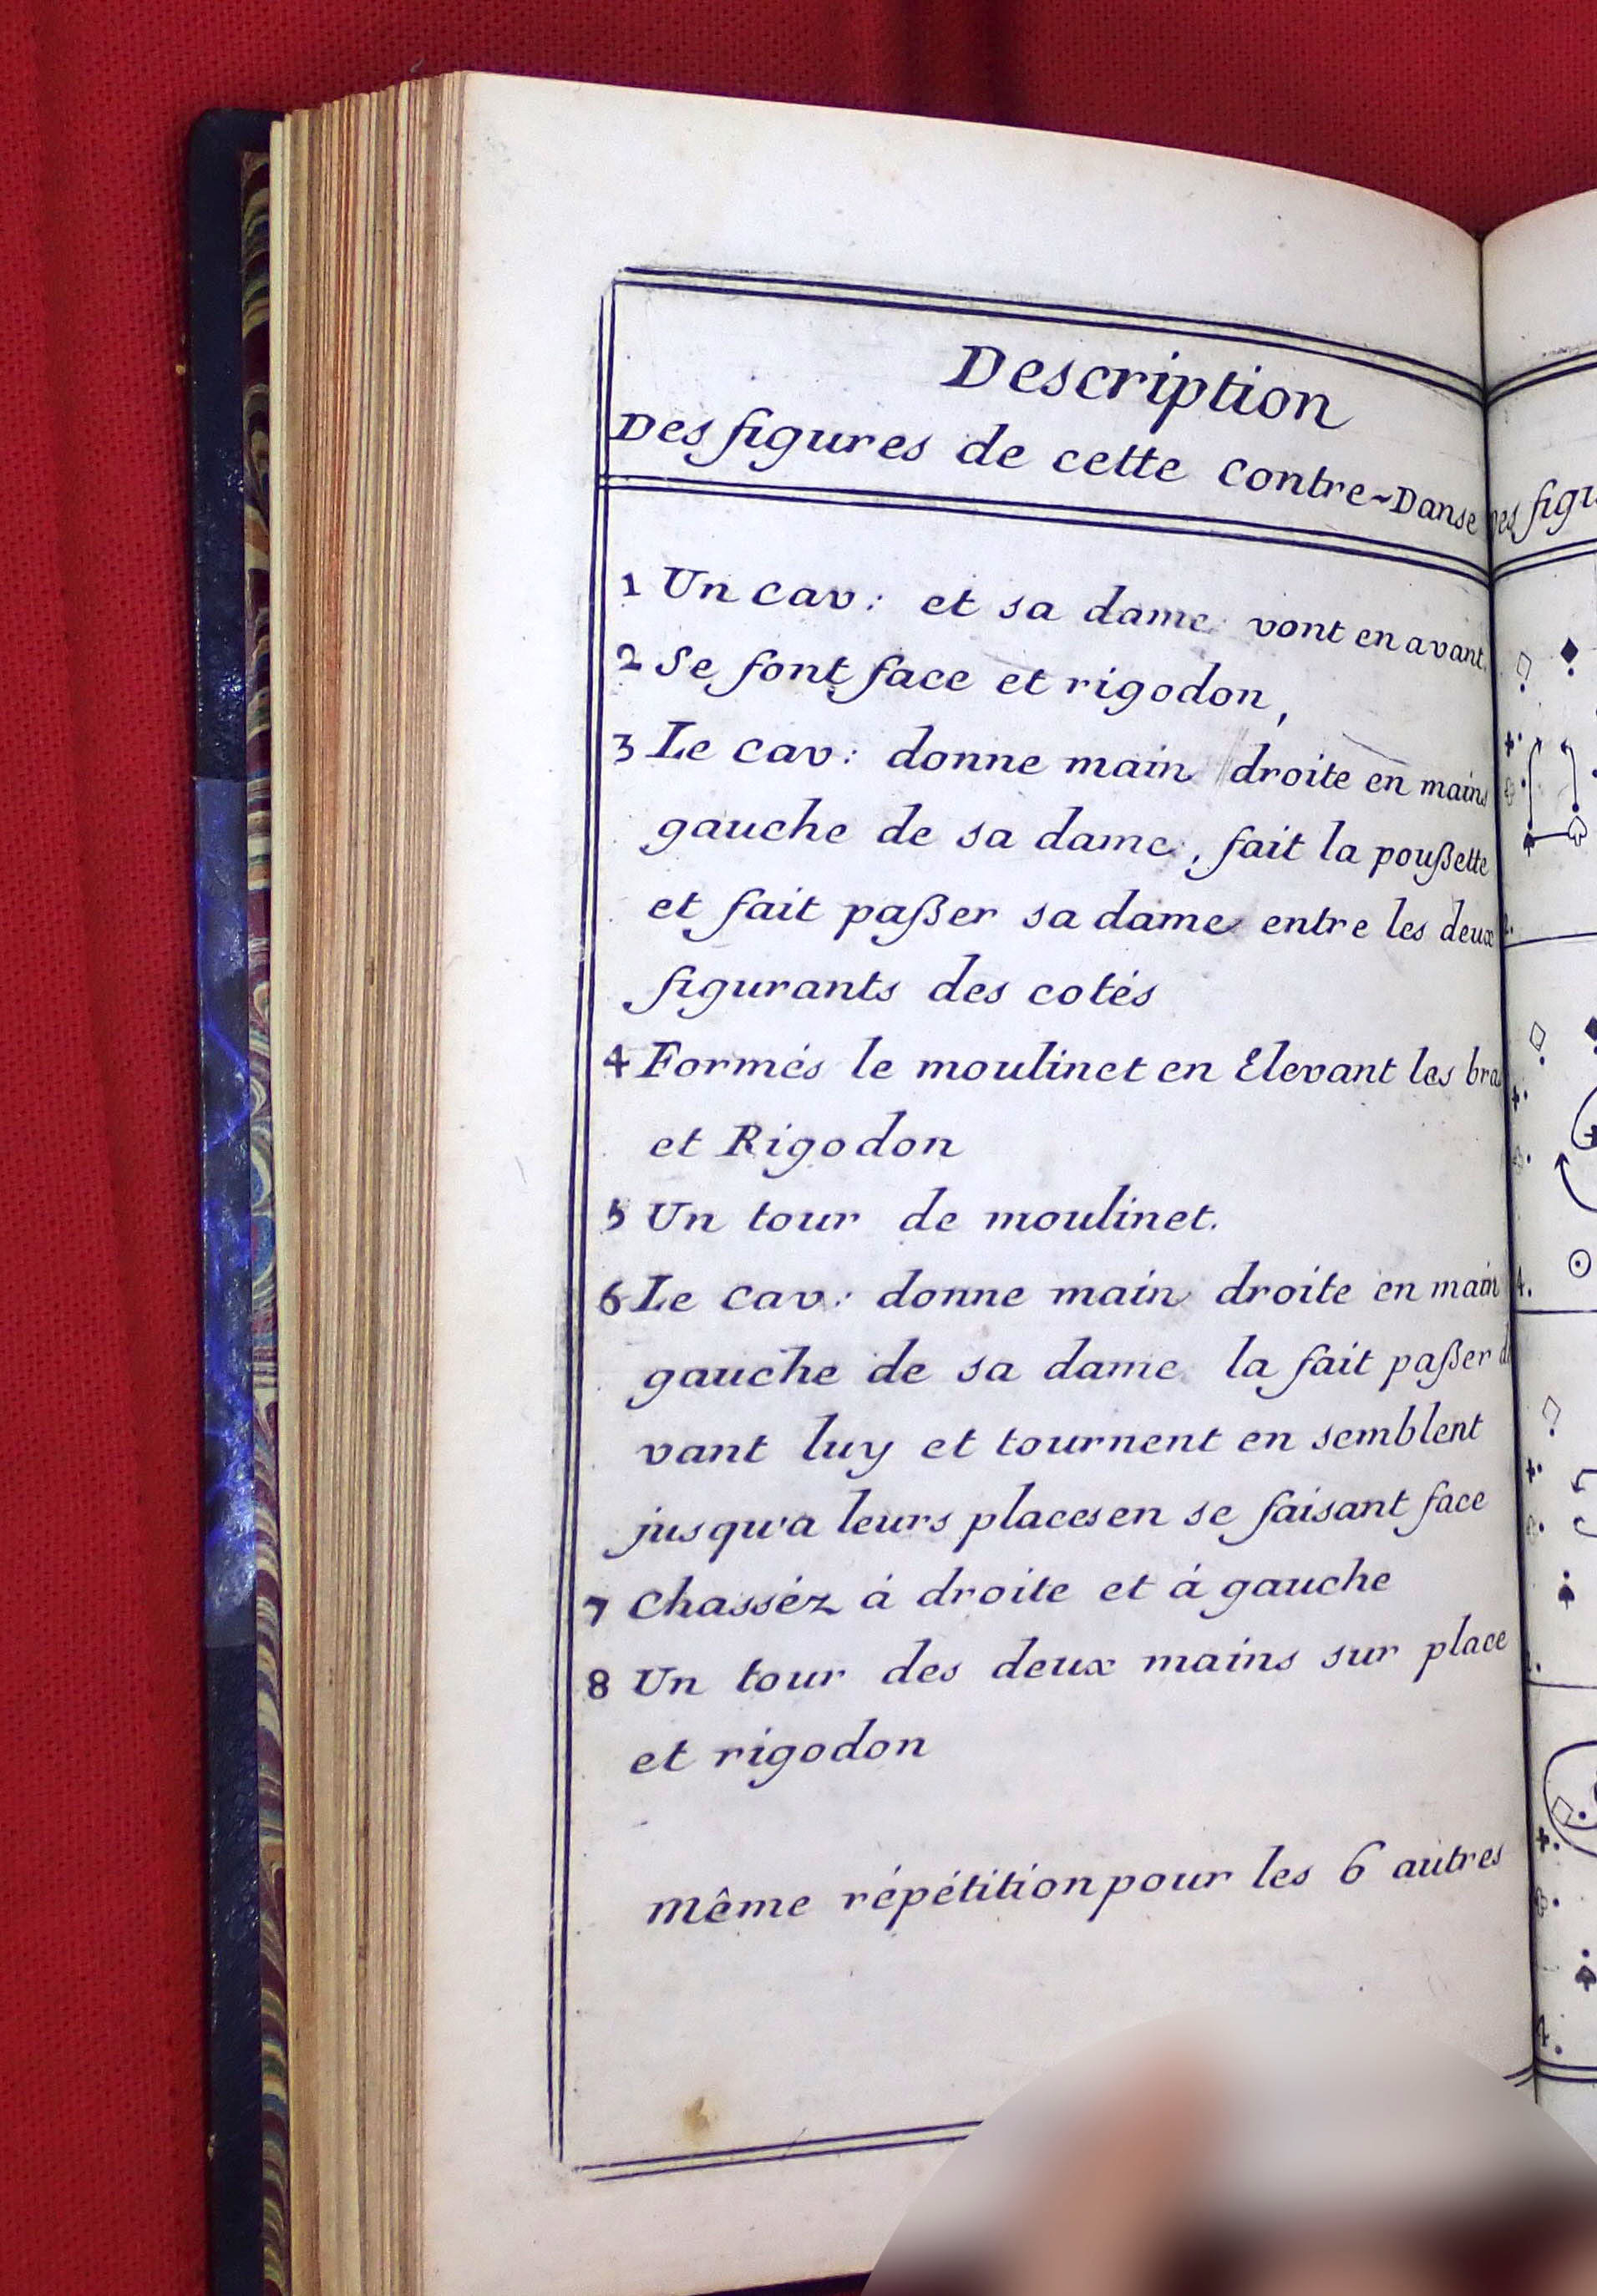 Description
Des figures de cette Contre-Danse
1 Un cav: et sa dame vont en avant.
2 Se font face et rigodon,
3 Le cav: donne main droite en mains
gauche de sa dame, fait la poußette
et fait paßer sa dame entre les deux
figurants des cotés
4 Formés le moulinet en Elevant les bras
et Rigodon
5 Un tour de moulinet.
6 Le Cav: donne main droite en main
gauche de sa dame la fait paßer de
vant luy et tournent en semblent
jusqu'a leurs places en se faisant face
7 Chasséz á droite et á gauche
8 Un tour des deux mains sur place
et rigodon
même répétition pour les 6 autres
Des figu
2.
4.
4.